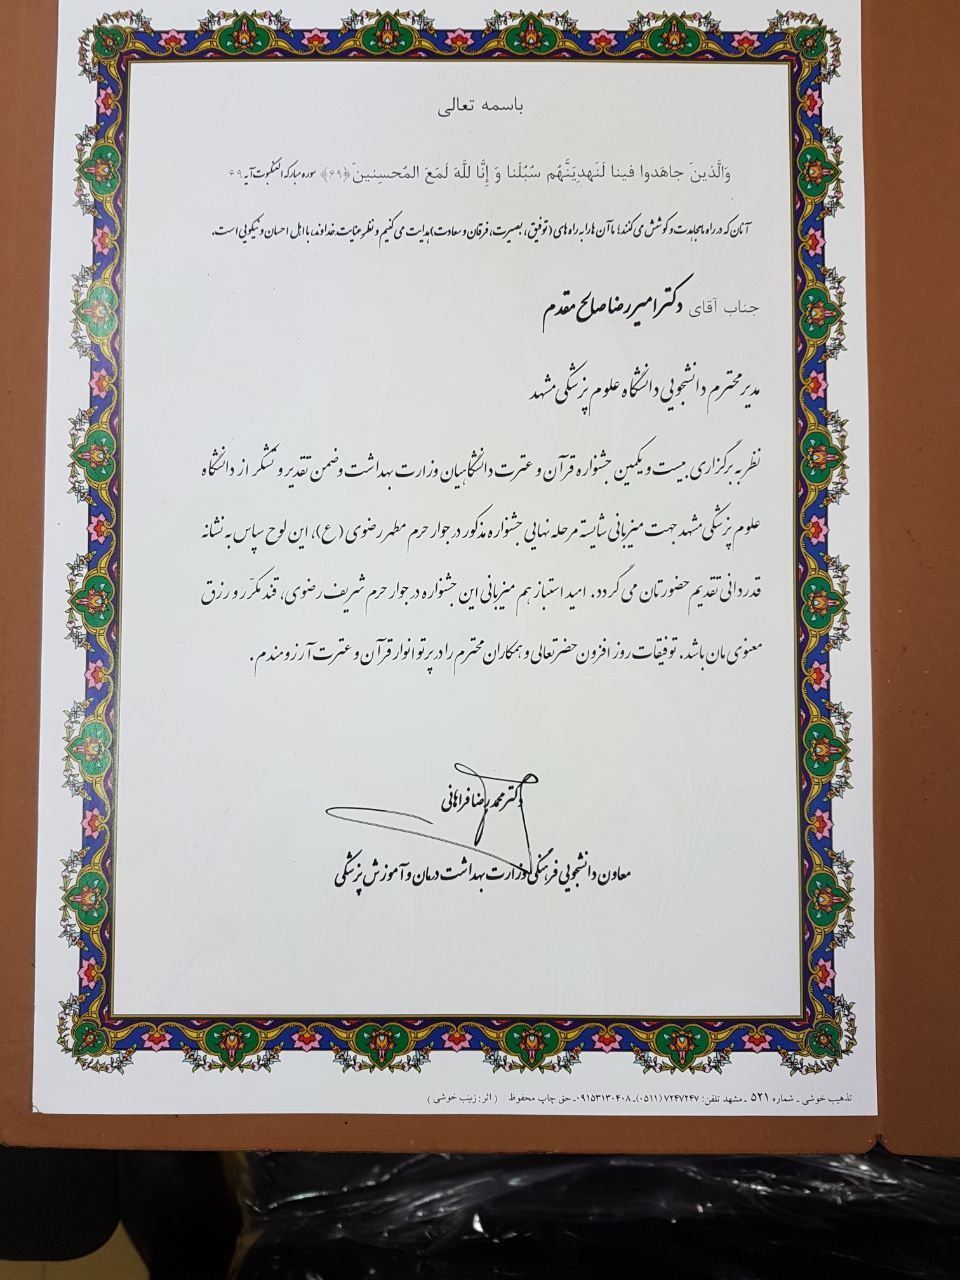 باسمه تعالی
وَالَّذینَ جاهَدوا فینا لَنَهدِیَنَّهُم سُبُلَنا وَ إِنَّا للَّهَ لَمَعَ المُحسِنینَ﴿۶۹﴾ سوره مبارکه العنکبوت آیه ۶۹
آنان که در راه ما مجاهدت و کوشش می کنند؛ ما آن ها را به راه های (توفیق، بصیرت، فرقان و سعادت) هدایت می کنیم و نظر عنایت خداوند، با اهل احسان و نیکویی است.
جناب آقای دکتر امیررضا صالح مقدم
مدیر محترم دانشجویی دانشگاه علوم پزشکی مشهد
نظر به برگزاری بیست و یکمین جشنواره قرآن و عترت دانشگاهیان وزارت بهداشت و ضمن تقدیر و تشکر از دانشگاه
علوم پزشکی مشهد جهت میزبانی شایسته مرحله نهایی جشنواره مذکور در جوار حرم مطهر رضوی (ع)، این لوح سپاس به نشانه
قدردانی تقدیم حضورتان می گردد. امید است باز هم میزبانی این جشنواره در جوار حرم شریف رضوی، قند مکرّر و رزق
معنوی مان باشد. توفیقات روز افزون حضرتعالی و همکاران محترم را در پرتو انوار قرآن و عترت آرزومندم.
دکتر محمدرضا فراهانی
معاون دانشجویی فرهنگی وزارت بهداشت درمان و آموزش پزشکی
تذهیب خوشی ـ شماره ۵۲۱ ـ مشهد تلفن: ۷۲۴۷۲۴۷ (۰۵۱۱)ـ۰۹۱۵۳۱۳۰۴۰۸ـ حق چاپ محفوظ (اثر: زینب خوشی)